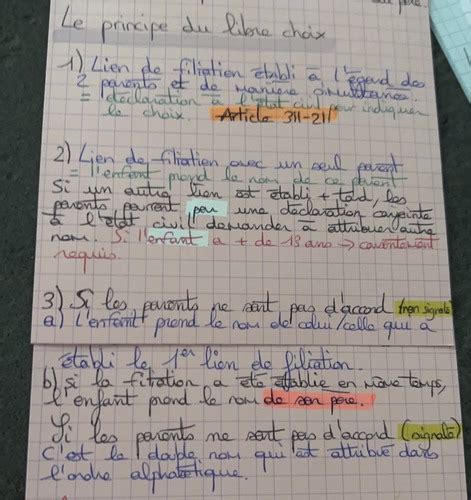 Le principe du libre choix
1) Lien de filiation établi à l'égard des
2 parents et de manière simultanée.
= déclaration à l'état civil pour indiquer
le choix. Article 311-21
2) Lien de filiation avec un seul parent
= l'enfant prend le nom de ce parent
Si un autre lien est établi + tard, les
parents peuvent par une déclaration conjointe
à l'état civil demander à attribuer autre
nom. Si l'enfant a + de 13 ans → consentement
requis.
3) Si les parents ne sont pas d'accord (non signalé)
a) L'enfant prend le nom de celui/celle qui a
établi le 1er lien de filiation.
b) si la filiation a été établie en même temps,
l'enfant prend le nom de son père.
Si les parents ne sont pas d'accord (signalé)
C'est le double nom qui est attribué dans
l'ordre alphabétique.